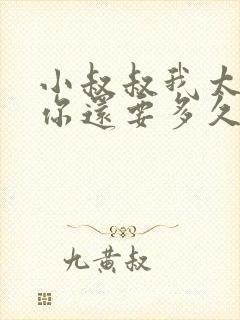 小叔叔我大
你還要多久
九黄叔